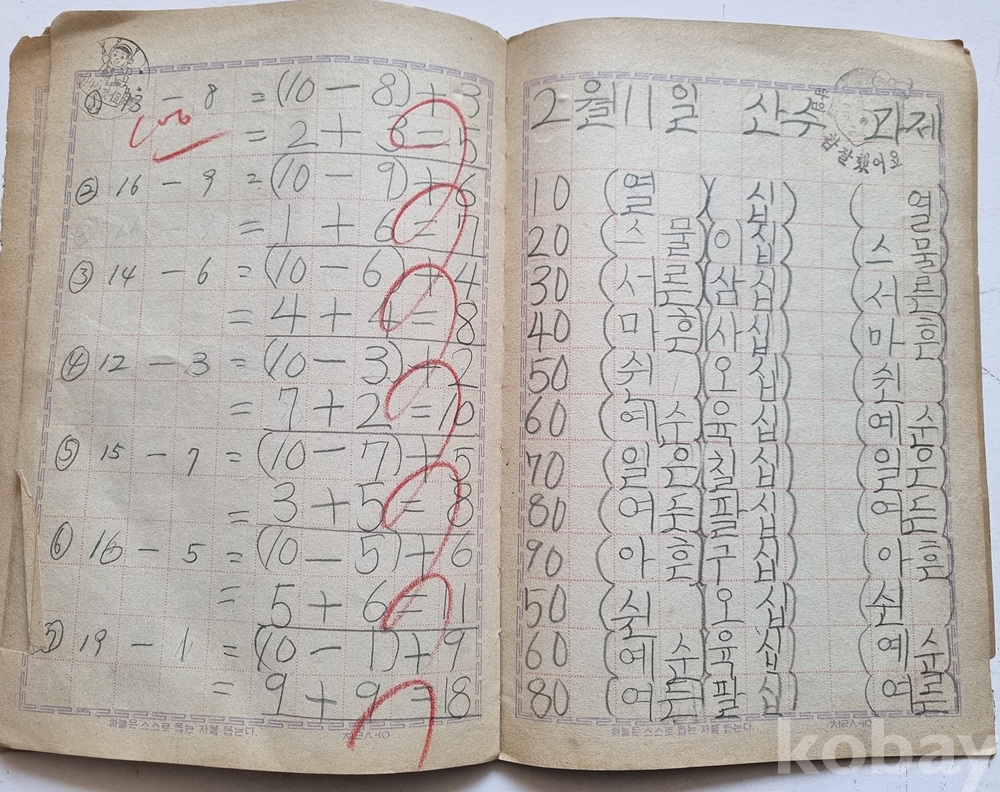 ① 13 - 8 = (10 - 8) + 3
100
= 2 + 3 = 5
② 16 - 9 = (10 - 9) + 6
= 1 + 6 = 7
③ 14 - 6 = (10 - 6) + 4
= 4 + 4 = 8
④ 12 - 3 = (10 - 3) + 2
= 7 + 2 = 10
⑤ 15 - 7 = (10 - 7) + 5
= 3 + 5 = 8
⑥ 16 - 5 = (10 - 5) + 6
= 5 + 6 = 11
⑦ 19 - 1 = (10 - 1) + 9
= 9 + 9 = 18
하늘은 스스로 돕는 자를 돕는다.
2월 11일 산수 과제
참 잘했어요
10 (열)(십) (열
20 (스물)(이십) (스물
30 (서른)(삼십) (서른
40 (마흔)(사십) (마흔
50 (쉰)(오십) (쉰
60 (예순)(육십) (예순
70 (일은)(칠십) (일은
80 (여든)(팔십) (여든
90 (아흔)(구십) (아흔
50 (쉰)(오십) (쉰
60 (예순)(육십) (예순
80 (여든)(팔십) (여든
kobay